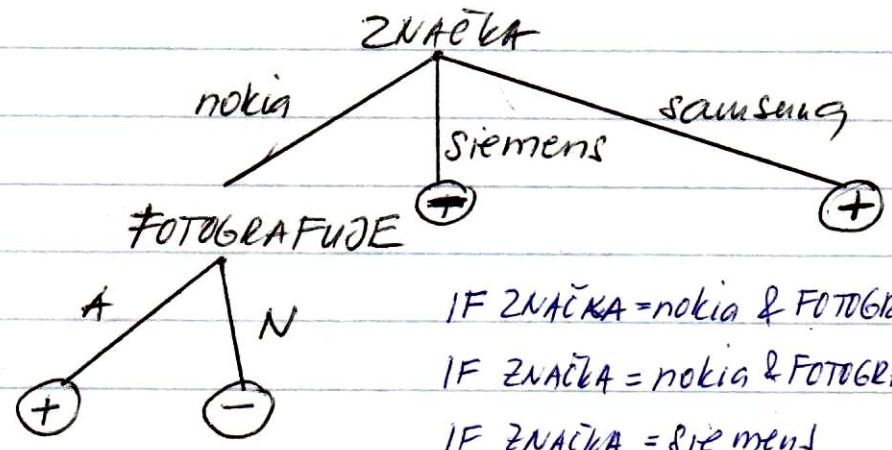 ZNAČKA
nokia
siemens
samsung
FOTOGRAFUJE
+
+
A
N
+
-
IF ZNAČKA = nokia & FOTOGR
IF ZNAČKA = nokia & FOTOGRA
IF ZNAČKA = siemens